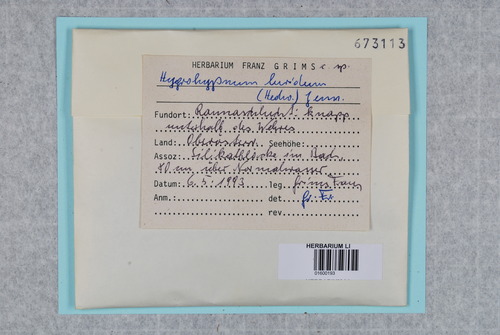 673113
HERBARIUM FRANZ GRIMS c. sp.
Hygrohypnum luridum
(Hedw.) Jenn.
Fundort: Rannaschlucht: knapp
unterhalb des Wehres
Land: Oberösterr. Seehöhe:
Assoz: Silikatblöcke im Bach,
10 cm über Normalwasser
Datum: 6.5.1993 leg. Grims Franz
Anm.: det. Gr. Fr.
rev.
HERBARIUM LI
01600193